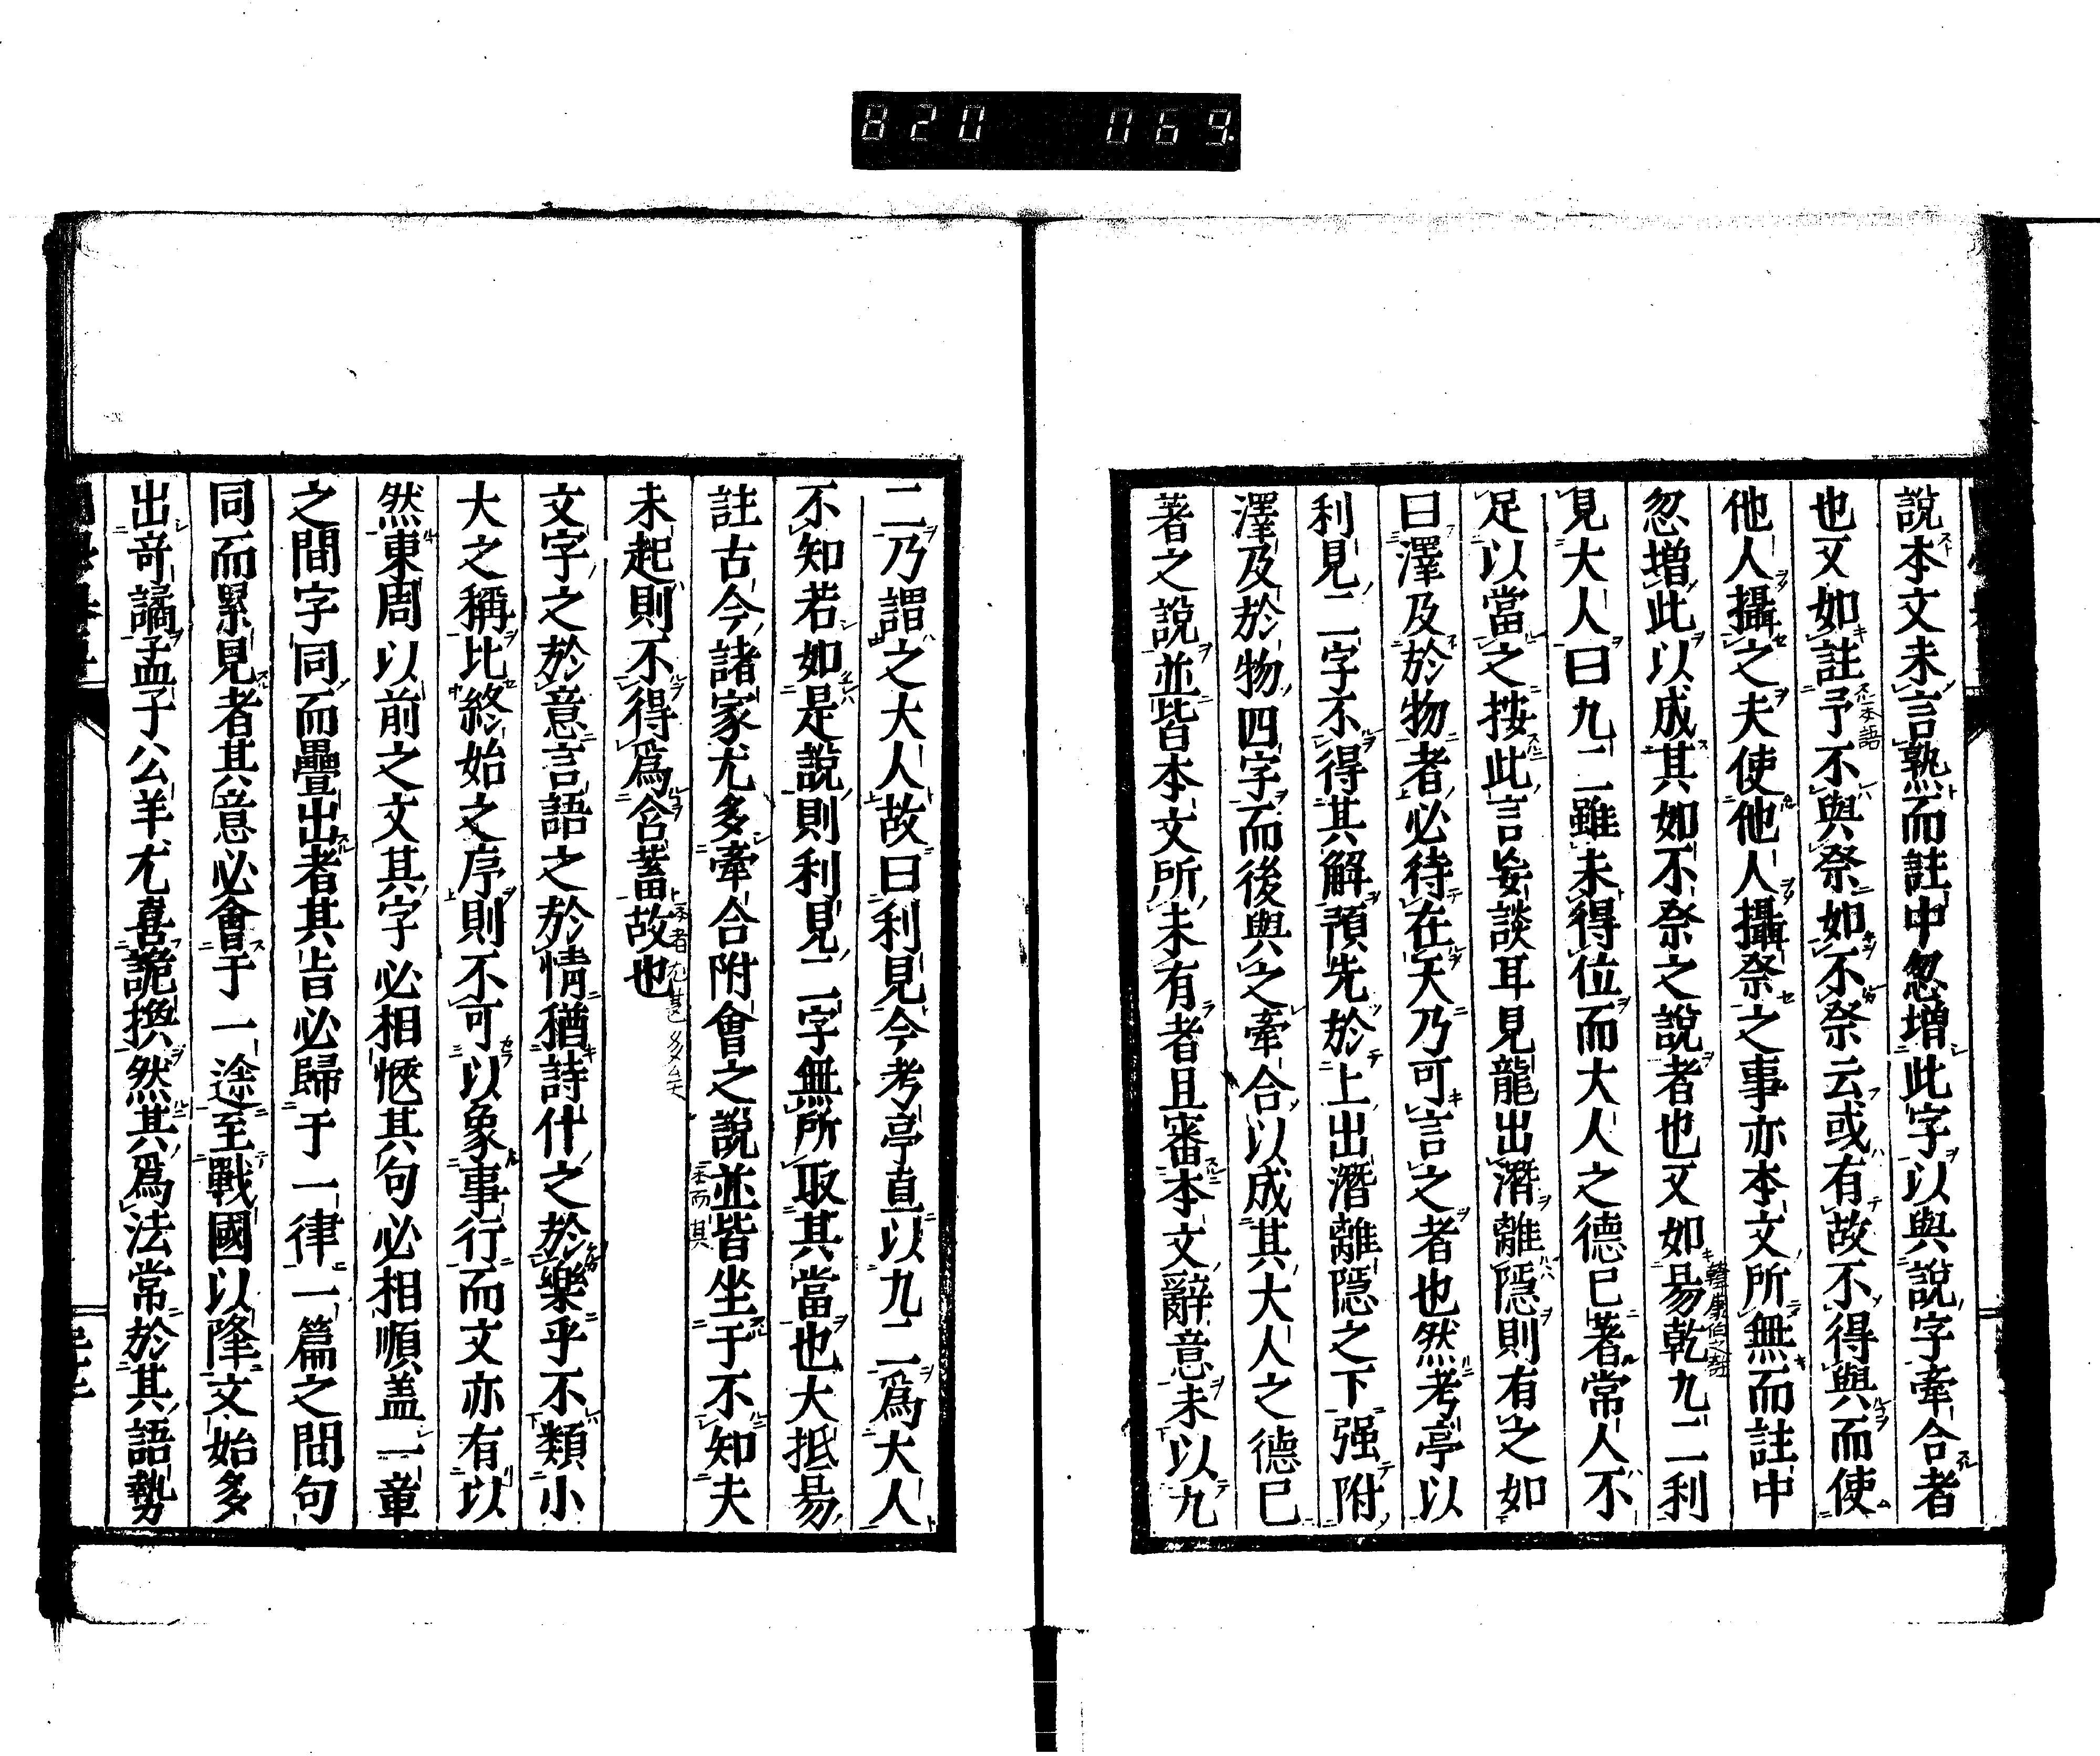 820 069.
說本文未言熟而註中忽增此字以與說字牽合者
也又如註予不與祭如不祭云或有故不得與而使
他人攝之夫使他人攝祭之事亦本文所無而註中
忽增此以成其如不祭之說者也又如易乾九二利
見大人曰九二雖未得位而大人之德已著常人不
足以當之按此言妄談耳見龍出潛離隱則有之如
曰澤及於物者必待在天乃可言之者也然考亭以
利見二字不得其解預先於上出潛離隱之下强附
澤及於物四字而後與之牽合以成其大人之德已
著之說並皆本文所未有者且審本文辭意未以九
二乃謂之大人故曰利見今考亭直以九二爲大人
不知若如是說則利見二字無所取其當也大抵易
註古今諸家尤多牽合附會之說並皆坐于不知夫
未起則不得爲含蓄故也
文字之於意言語之於情猶詩什之於樂乎不類小
大之稱比終始之序則不可以象事行而文亦有以
然東周以前之文其字必相愜其句必相順盖一章
之間字同而疊出者其旨必歸于一律一篇之間句
同而累見者其意必會于一途至戰國以降文始多
出奇譎孟子公羊尤喜詭換然其爲法常於其語勢